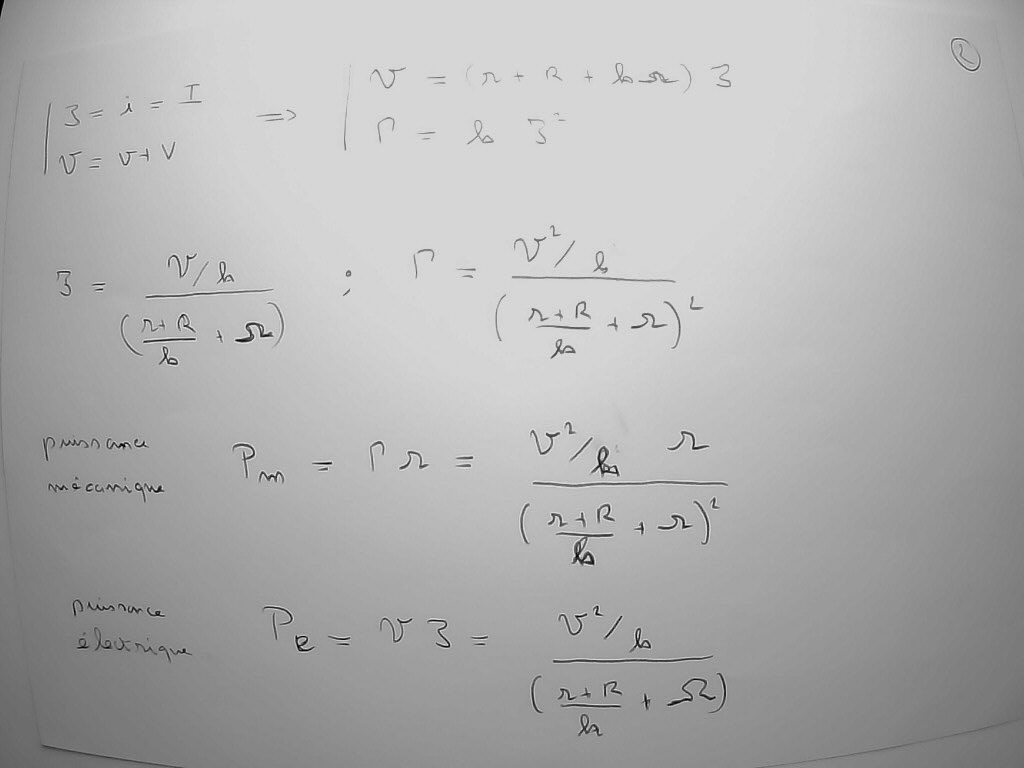 2
| ℨ = i = I => | 𝒱 = (r + R + kΩ) ℨ
| 𝒱 = v + V | Γ = k ℨ²
ℨ = (𝒱/k) / ((r+R)/k + Ω) ; Γ = (𝒱²/k) / ((r+R)/k + Ω)²
puissance
mécanique Pm = Γ Ω = (𝒱²/k Ω) / ((r+R)/k + Ω)²
puissance
électrique Pe = 𝒱 ℨ = (𝒱²/k) / ((r+R)/k + Ω)